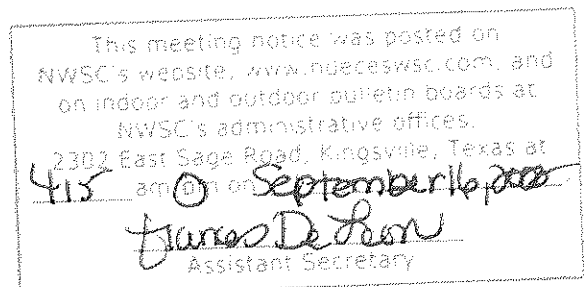 This meeting notice was posted on
NWSC's website, www.nueceswsc.com, and
on indoor and outdoor bulletin boards at
NWSC's administrative offices,
2302 East Sage Road, Kingsville, Texas at
415 am/pm on September 16, 2008
Frances De Leon
Assistant Secretary